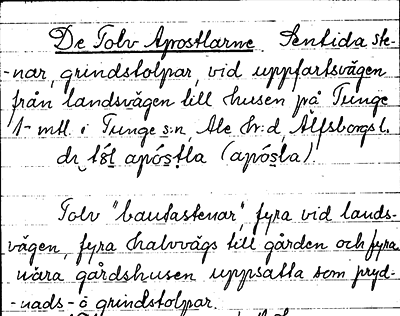 De Tolv Apostlarne. Sentida ste-
-nar, grindstolpar, vid uppfartsvägen
från landsvägen till husen på Tunge
1 - mtl. i Tunge s:n, Ale h:d Älfsborgs l.
apóstla (apósla).
Tolv "bautastenar", fyra vid lands-
vägen, fyra halvvägs till gården och fyra
nära gårdshusen uppsatta som pryd-
-nads- o grindstolpar.